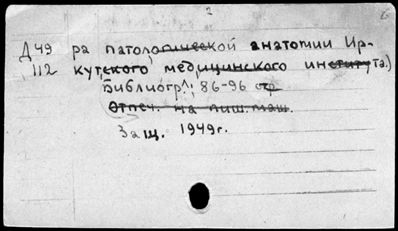 2
Д49 ра патологической анатомии Ир-
112 кутского медицинского института.)
Библиогр.: 86-96 стр
Отпеч. на пиш. маш.
Защ. 1949г.